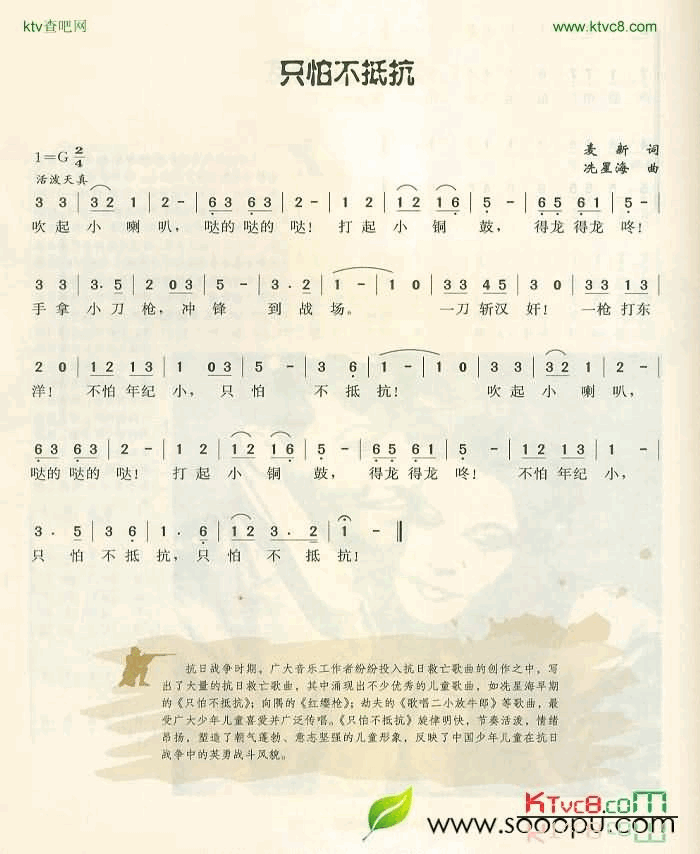 ktv查吧网
www.ktvc8.com
只怕不抵抗
1=G 2/4
麦 新 词
冼星海 曲
活泼天真
3 3 | 3 2 1 | 2 - | 6 3 6 3 | 2 - | 1 2 | 1 2 1 6 | 5 - | 6 5 6 1 | 5 - |
吹起小喇叭，哒的哒的哒！打起小铜鼓，得龙得龙咚！
3 3 | 3 . 5 | 2 0 3 | 5 - | 3 . 2 | 1 - | 1 0 | 3 3 4 5 | 3 0 | 3 3 1 3 |
手拿小刀枪，冲锋到战场。一刀斩汉奸！一枪打东
2 0 | 1 2 1 3 | 1 . 3 | 2 5 | 5 - | 3 6 | 1 - | 1 0 | 3 3 | 3 2 1 | 2 - |
洋！不怕年纪小，只怕不抵抗！吹起小喇叭，
6 3 6 3 | 2 - | 1 2 | 1 2 1 6 | 5 - | 6 5 6 1 | 5 - | 1 2 1 3 | 1 - |
哒的哒的哒！打起小铜鼓，得龙得龙咚！不怕年纪小，
3 . 5 | 3 6 | 1 . 6 | 1 2 3 . 2 | 1 - ‖
只怕不抵抗，只怕不抵抗！
抗日战争时期，广大音乐工作者纷纷投入抗日救亡歌曲的创作之中，写
出了大量的抗日救亡歌曲，其中涌现出不少优秀的儿童歌曲，如冼星海早期
的《只怕不抵抗》；向隅的《红缨枪》；劫夫的《歌唱二小放牛郎》等歌曲，最
受广大少年儿童喜爱并广泛传唱。《只怕不抵抗》旋律明快，节奏活泼，情绪
昂扬，塑造了朝气蓬勃、意志坚强的儿童形象，反映了中国少年儿童在抗日
战争中的英勇战斗风貌。
KTvc8.com
www.sooopu.com